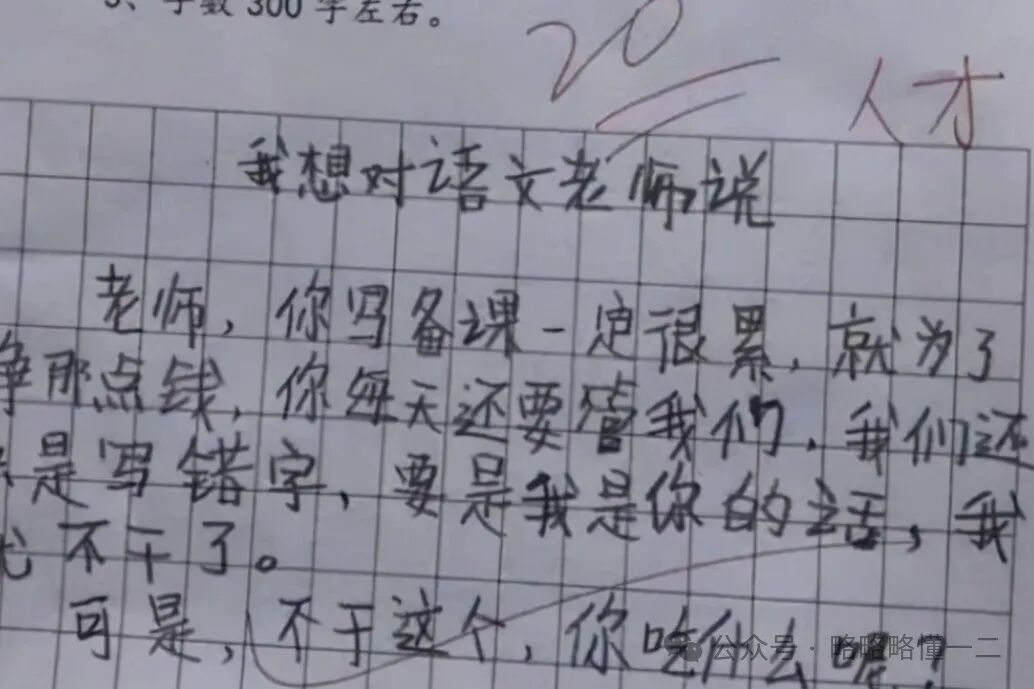 3、字数 300 字左右。
20
人才
我想对语文老师说
老师，你写备课一定很累，就为了
争那点钱，你每天还要管我们，我们还
是写错字，要是我是你的话，我
不干了。
可是，不干这个，你吃什么呢！
公众号·略略略懂一二